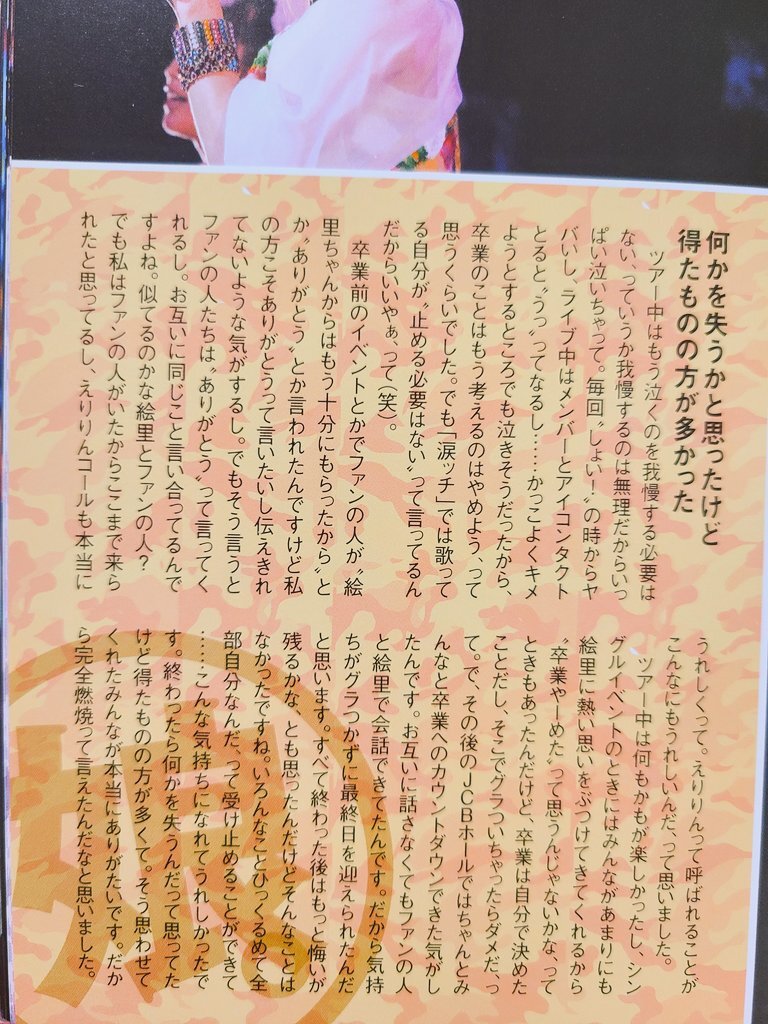 何かを失うかと思ったけど
得たものの方が多かった
ツアー中はもう泣くのを我慢する必要は
ない、っていうか我慢するのは無理だからいっ
ぱい泣いちゃって。毎回〝しょい！〟の時からヤ
バいし、ライブ中はメンバーとアイコンタクト
とると〝うっ〟ってなるし……かっこよくキメ
ようとするところでも泣きそうだったから、
卒業のことはもう考えるのはやめよう、って
思うくらいでした。でも「涙ッチ」では歌って
る自分が〝止める必要はない〟って言ってるん
だからいいやぁ、って（笑）。
卒業前のイベントとかでファンの人が〝絵
里ちゃんからはもう十分にもらったから〟と
か〝ありがとう〟とか言われたんですけど私
の方こそありがとうって言いたいし伝えきれ
てないような気がするし。でもそう言うと
ファンの人たちは〝ありがとう〟って言ってく
れるし。お互いに同じこと言い合ってるんで
すよね。似てるのかな絵里とファンの人？
でも私はファンの人がいたからここまで来ら
れたと思ってるし、えりりんコールも本当に
うれしくって。えりりんって呼ばれることが
こんなにもうれしいんだ、って思いました。
ツアー中は何もかもが楽しかったし、シン
グルイベントのときにはみんながあまりにも
絵里に熱い思いをぶつけてきてくれるから
〝卒業やーめた〟って思うんじゃないかな、って
ときもあったんだけど、卒業は自分で決めた
ことだし、そこでグラついちゃったらダメだ、っ
て。で、その後のJCBホールではちゃんとみ
んなと卒業へのカウントダウンできた気がし
たんです。お互いに話さなくてもファンの人
と絵里で会話できてたんです。だから気持
ちがグラつかずに最終日を迎えられたんだ
と思います。すべて終わった後はもっと悔いが
残るかな、とも思ったんだけどそんなことは
なかったですね。いろんなことひっくるめて全
部自分なんだ、って受け止めることができて
……こんな気持ちになれてうれしかったで
す。終わったら何かを失うんだって思ってた
けど得たものの方が多くて。そう思わせて
くれたみんなが本当にありがたいです。だか
ら完全燃焼って言えたんだなと思いました。